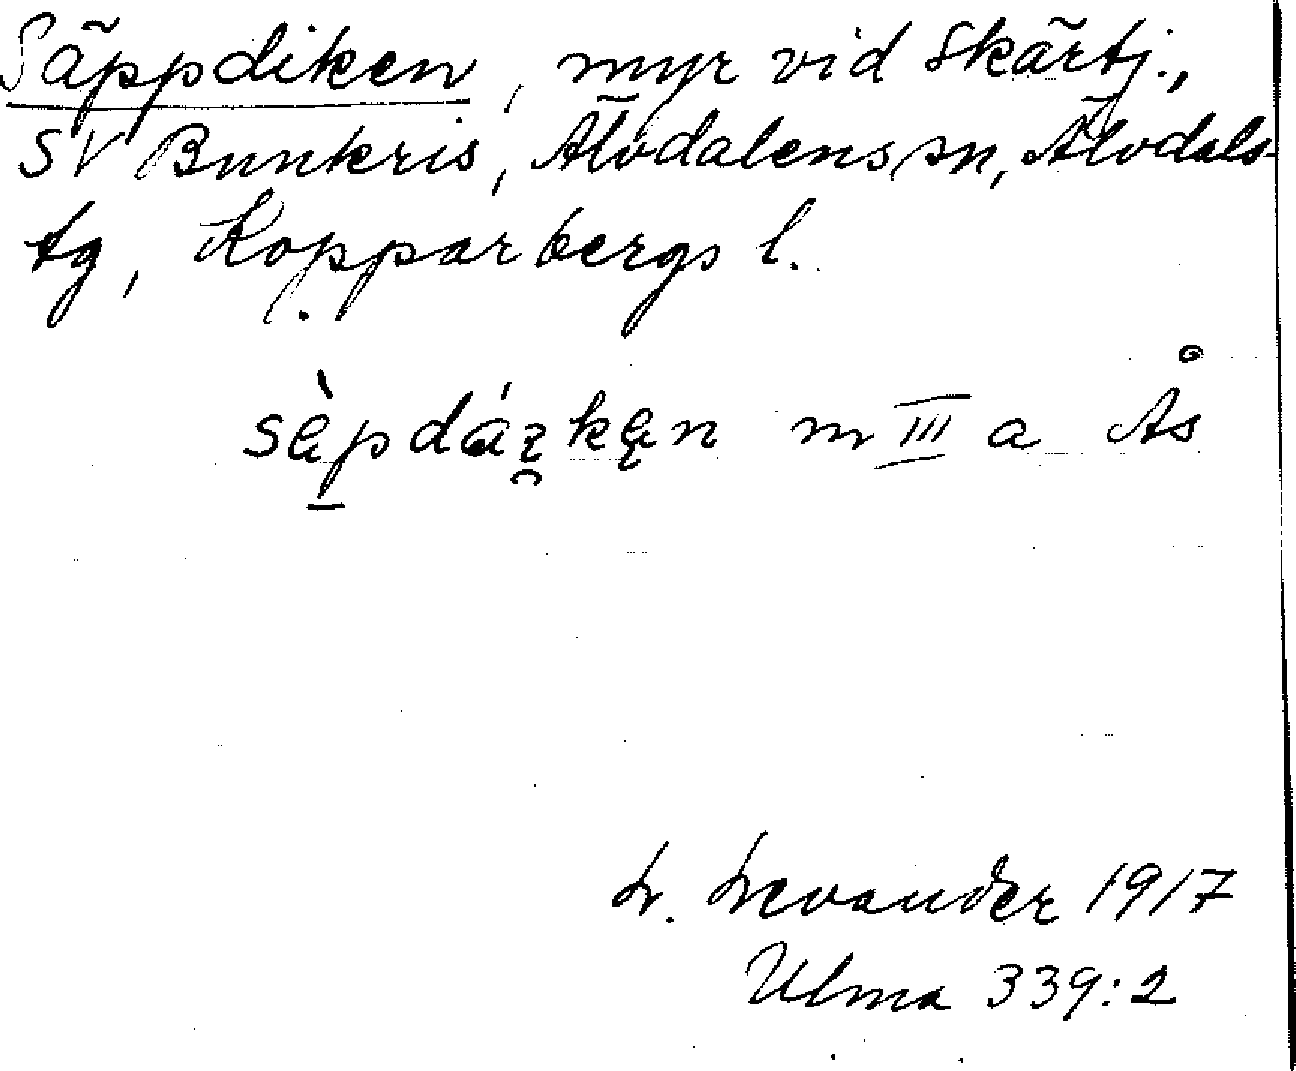 Säppdiken, myr vid Skärtj.,
SV Bunkris, Älvdalens sn, Älvdals
tg, Kopparbergs l.
m III a Ås
L. Levander 1917
Ulma 339:2